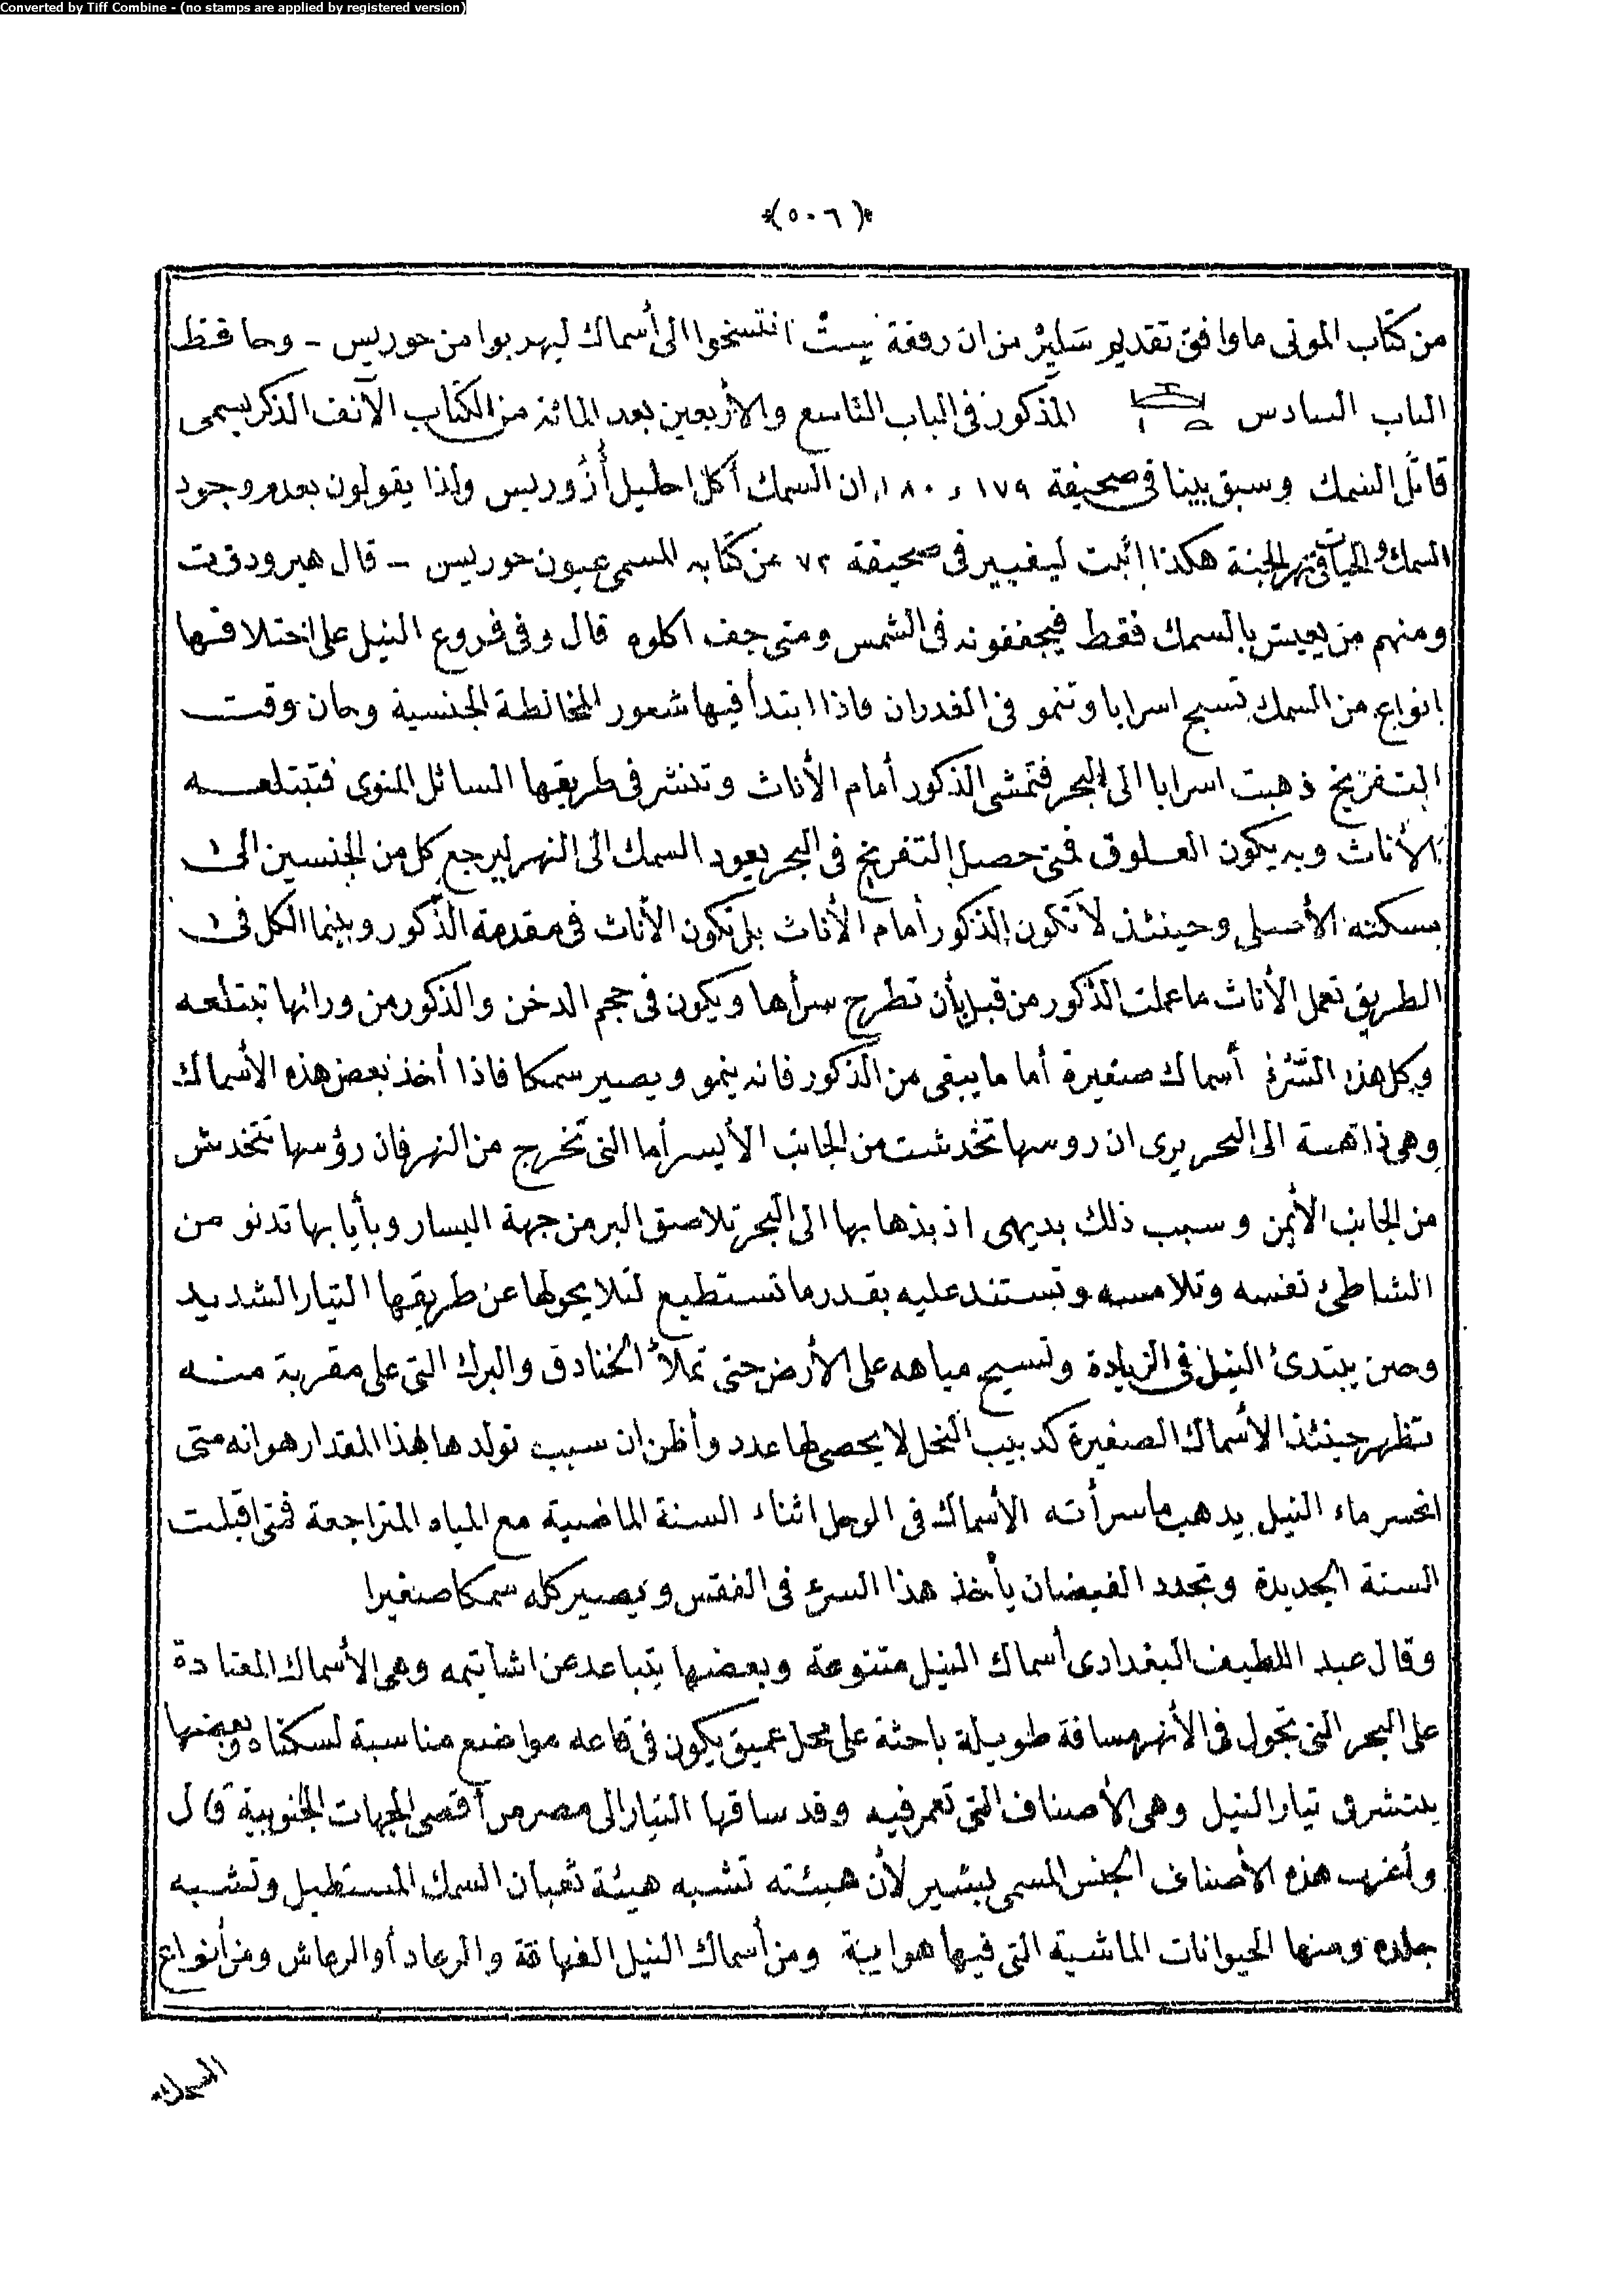 Converted by Tiff Combine - (no stamps are applied by registered version)
(٥٠٦)
من كتاب الموتى ما وافق تقديم سَليْرْ من ان رفقة سِتْ انتسخوا الى أسماك ليهربوا من حوريس - وحافظ
الباب السادس المذكور فى الباب التاسع والأربعين بعد المائة من الكتاب الآنف الذكر يسمى
قاتل السمك وسبق بينا فى صحيفة ١٧٩ و ١٨٠ ان السمك أكل احليل أُزُوريس ولذا يقولون بعدم وجود
السمك والحيات فى نهر الجنة هكذا اثبت ليفيير فى صحيفة ٧٢ من كتابه المسمى عيون حوريس - قال هيرودوت
ومنهم من يعيش بالسمك فقط فيجففونه فى الشمس ومتى جف اكلوه قال وفى فروع النيل على اختلافها
انواع من السمك تسبح اسرابا وتنمو فى الغدران فاذا ابتدأ فيها شعور المخالطة الجنسية وحان وقت
التفريخ ذهبت اسرابا الى البحر فتمشى الذكور أمام الأناث وتنشر فى طريقها السائل المنوى فتبتلعه
الأناث وبه يكون العلوق فمتى حصل التفريخ فى البحر يعود السمك الى النهر ليرجع كل من الجنسين الى
مسكنه الأصلى وحينئذ لا تكون الذكور أمام الأناث بل تكون الأناث فى مقدمة الذكور وبينما الكل فى
الطريق تعمل الأناث ما عملت الذكور من قبل بأن تطرح سرأها ويكون فى حجم الدخن والذكور من ورائها تبتلعه
وكل هذا السَّرْء أسماك صغيرة أما ما يبقى من الذكور فانه ينمو ويصير سمكا فاذا أخذ بعض هذه الأسماك
وهى ذاهبة الى البحر يرى ان روسها تخدشت من الجانب الأيسر أما التى تخرج من النهر فان رؤسها تتخدش
من الجانب الأيمن وسبب ذلك بديهى اذ بذهابها الى البحر تلاصق البر من جهة اليسار وبأيابها تدنو من
الشاطئ نفسه وتلامسه وتستند عليه بقدر ما تستطيع لئلا يحولها عن طريقها التيار الشديد
وحين يبتدئ النيل فى الزيادة وتسيح مياهه على الأرض حتى تملأ الخنادق والبرك التى على مقربة منه
تظهر حينئذ الأسماك الصغيرة كدبيب النحل لا يحصى لها عدد وأظن ان سبب تولدها بهذا المقدار هو انه متى
انحسر ماء النيل يدهب ما سرأته الأسماك فى الوحل اثناء السنة الماضية مع المياه المتراجعة فمتى اقبلت
السنة الجديدة وتجدد الفيضان يأخذ هذا السرء فى الفقس ويصير كله سمكا صغيرا
وقال عبد اللطيف البغدادى أسماك النيل متنوعة وبعضها يتباعد عن اشاتيمه وهى الأسماك المعتادة
على البحر التى تجول فى الأنهر مسافة طويلة باحثة على محل عميق يكون فى قاعه مواضع مناسبة لسكناه وبعضها
ينتشر فى تيار النيل وهى الأصناف التى تعمر فيه وقد ساقها التيار الى مصر من أقصى الجهات الجنوبية قال
وأغرب هذه الأصناف الجنس المسمى بشير لأن هيئته تشبه هيئة ثعبان السمك المستطيل وتشبه
جلده ومنها الحيوانات الماشية التى فيها هوايية ومن أسماك النيل الفهاقة والرعاد أو الرعاش ومن أنواع
السمك